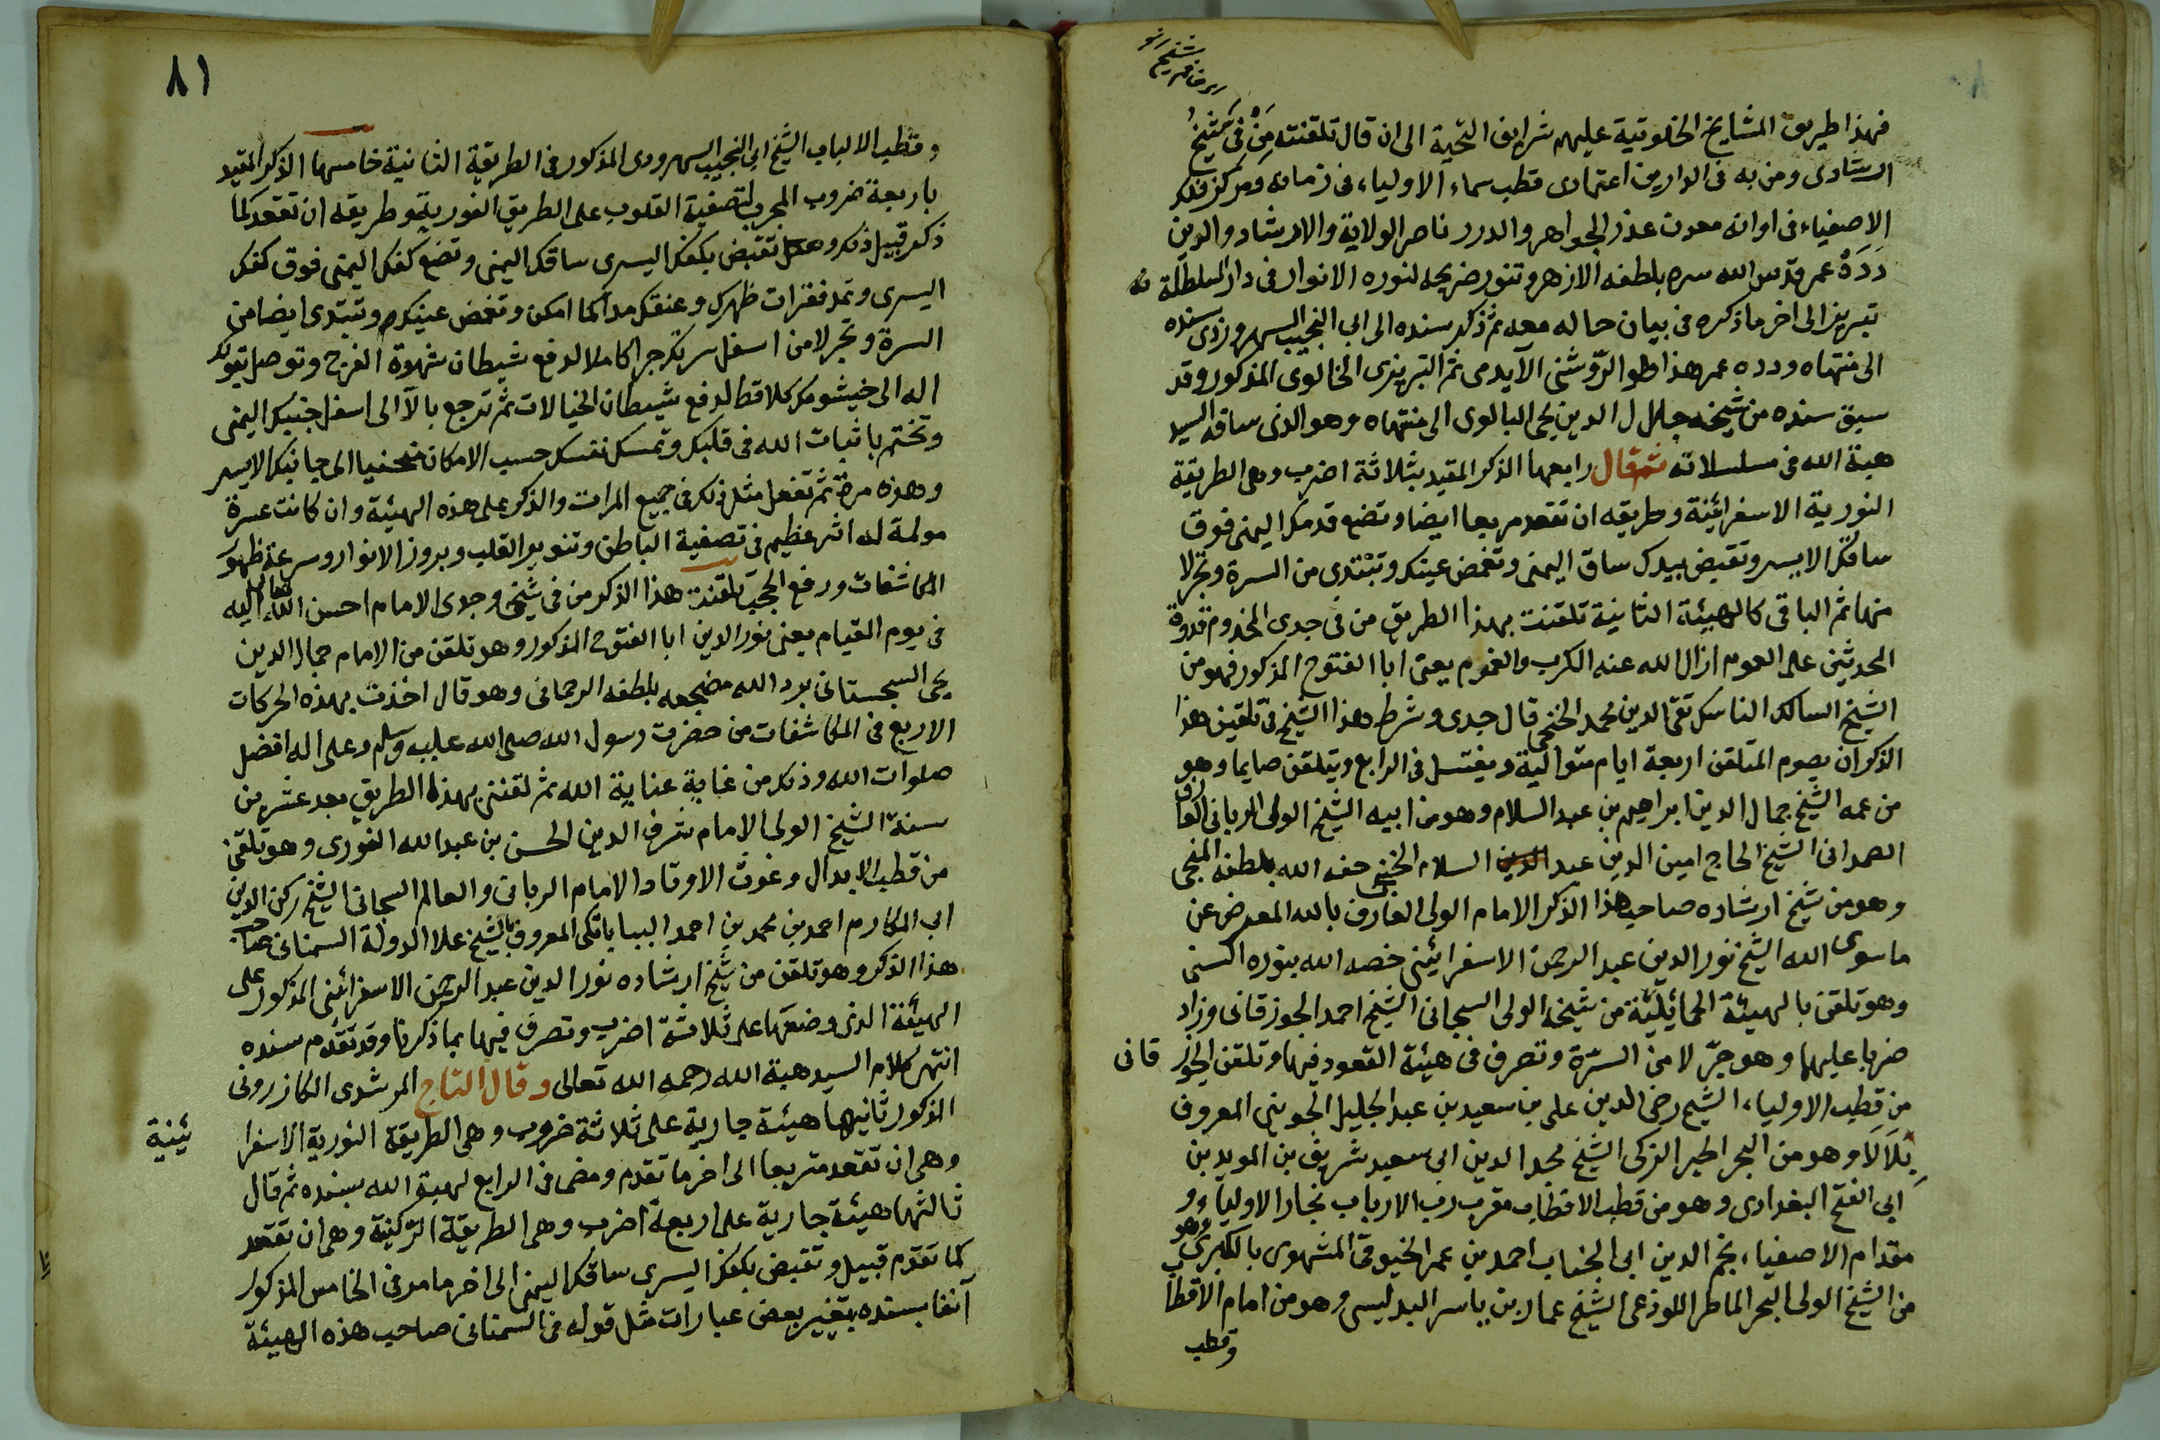 فهذا طريق المشايخ الخلوتية عليهم شرايف التحية الى ان قال تلقنته من في شيخ
ارشادى ومن به في الدارين اعتمادى قطب سماء الاولياء في زمانه ومركز فلك
الاصفياء في اوانه معدن عذر الجواهر والدرر ناصر الولاية والارشاد والدين
دَدَهْ عمر قدس الله سره بلطفه الازهر وتنور ضريحه لنوره الانوار في دار السلطلة
تبريز الى اخر ما ذكره في بيان حاله معه ثم ذكر سنده الى ابى النجيب السهروردى بسنده
الى منتهاه ودده عمر هذا هو الروشنى الآيدى ثم التبريزى الخالوى المذكور وقد
سبق سنده من شيخه جلال الدين يحيى البالوى الى منتهاه وهو الذى ساقه السيد
هبة الله في مسلسلاته ثم قال رابعها الذكر المقيد بثلاثة اضرب وهى الطريقة
النورية الاسفرائنية وطريقه ان تقعد مربعا ايضا وتضع قدمك اليمنى فوق
ساقك الايسر وتقبض بيدك ساق اليمنى وتغمض عينك وتبتدى من السرة وتجر لا
منها ثم الباقى كالهيئة الثانية تلقنت بهذا الطريق من في جدى المخدوم قدوة
المحدثين على العموم ازال الله عنه الكرب والغموم يعنى ابا الفتوح المذكور فهو من
الشيخ السالك الناسك تقى الدين محمد الخنجى قال جدى وشرط هذا الشيخ في تلقين هذا
الذكر ان يصوم المتلقن اربعة ايام متوالية ويغتسل في الرابع ويتلقن صايما وهو
من عمه الشيخ جمال الدين ابراهيم بن عبد السلام وهو من ابيه الشيخ الولى الربانى العارف
الصمدانى الشيخ الحاج امين الدين عبد السلام الخنجى حفه الله بلطفه المنجى
وهو من شيخ ارشاده صاحب هذا الذكر الامام الولى العارف بالله المعرض عن
ما سوى الله الشيخ نور الدين عبد الرحمن الاسفرائينى خصه الله بنوره اكسنى
وهو تلقن بالهيئة الحمايلية من شيخه الولى السبحانى الشيخ احمد الجوزقانى وزاد
ضربا عليها وهو جرّ لا من السرّة وتصرف في هيئة القعود فيها وتلقن الجوز قانى
من قطب الاولياء الشيخ رضى الدين على بن سعيد بن عبد الجليل الجوينى المعروف
بِلَالَا وهو من البحر الحبر الزكى الشيخ مجد الدين ابى سعيد شريف بن المويد بن
ابى الفتح البغدادى وهو من قطب الاقطاب مقرب رب الارباب نجار الاولياء و
مقدام الاصفياء نجم الدين ابى الجناب احمد بن عمر الخيوقى المشهوى بالكبرى وهو
من الشيخ الولى البحر الماطر اللوذعى الشيخ عمار بن ياسر البدليسى وهو من امام الاقطاب
وقطب
٨١
وقطب الالباب الشيخ ابى النجيب السهروردى المذكور في الطريقة الثانية خامسها الذكر المقيد
باربعة ضروب المجرب لتصفية القلوب على الطريق الغورية وطريقه ان تقعد كما
ذكر قبيل ذلك وتقبض بكفك اليسرى ساقك اليمنى وتضع كفك اليمنى فوق كفك
اليسرى وتمد فقرات ظهرك وعنقك مدا كما امكن وتغمض عينيك وتبتدى ايضا من
السرة وتجر لا من اسفل سرتك جرا كاملا لدفع شيطان شهوة الفرج وتوصل بقولك
اله الى خيشومك كلا قط لدفع شيطان الخيالات ثم ترجع بالّا الى اسفل جنبيك اليمنى
وتختم باثبات الله في قلبك وتمسك نفسك حسب الامكان منحنيا الى جانبك الايسر
وهذه مرة ثم تفعل مثل ذلك في جميع المرات والذكر على هذه الهيئة وان كانت عسرة
مولمة له اثر عظيم في تصفية الباطن وتنوير القلب وبروز الانوار وسرعة ظهور
المكاشفات ورفع الحجب تلقنت هذا الذكر من في شيخى وجدى الامام احسن الله تعالى اليه
في يوم القيام يعنى نور الدين ابا الفتوح المذكور وهو تلقن من الامام جمال الدين
يحيى السجستانى برد الله مضجعه بلطفه الرحمانى وهو قال اخذت بهذه الحركات
الاربع في المكاشفات من حضرت رسول الله صلى الله عليه وسلم وعلى اله افضل
صلوات الله وذلك من غاية عناية الله ثم لقننى بهذه الطريق بعد عشرين
سنة الشيخ الولى الامام شرف الدين الحسن بن عبد الله الغورى وهو تلقن
من قطب الابدال وغوث الاوتاد الامام الربانى والعالم السبحانى الشيخ ركن الدين
ابى المكارم احمد بن محمد بن احمد البيابانكى المعروف بالشيخ علا الدولة السمنانى صاحب
هذا الذكر وهو تلقن من شيخ ارشاده نور الدين عبد الرحمن الاسفرائنى المذكور على
الهيئة الذى وضعها على ثلاثة اضرب وتصرف فيها بما ذكرنا وقد تقدم سنده
انتهى كلام السيد هبة الله رحمه الله تعالى وقال التاج المرشدى الكازرونى
المذكور ثانيها هيئة جارية على ثلاثة ضروب وهى الطريقة النورية الاسفرا ئينية
وهى ان تقعد متربعا الى اخر ما تقدم ومضى في الرابع لهبة الله بسنده ثم قال
ثالثها هيئة جارية على اربعة اضرب وهى الطريقة الركنية وهى ان تقعد
كما تقدم قبيل وتقبض بكفك اليسرى ساقك اليمنى الى اخر ما مر في الخامس المذكور
آنفا بسنده بتغيير بعض عبارات مثل قوله في السمنانى صاحب هذه الهيئة